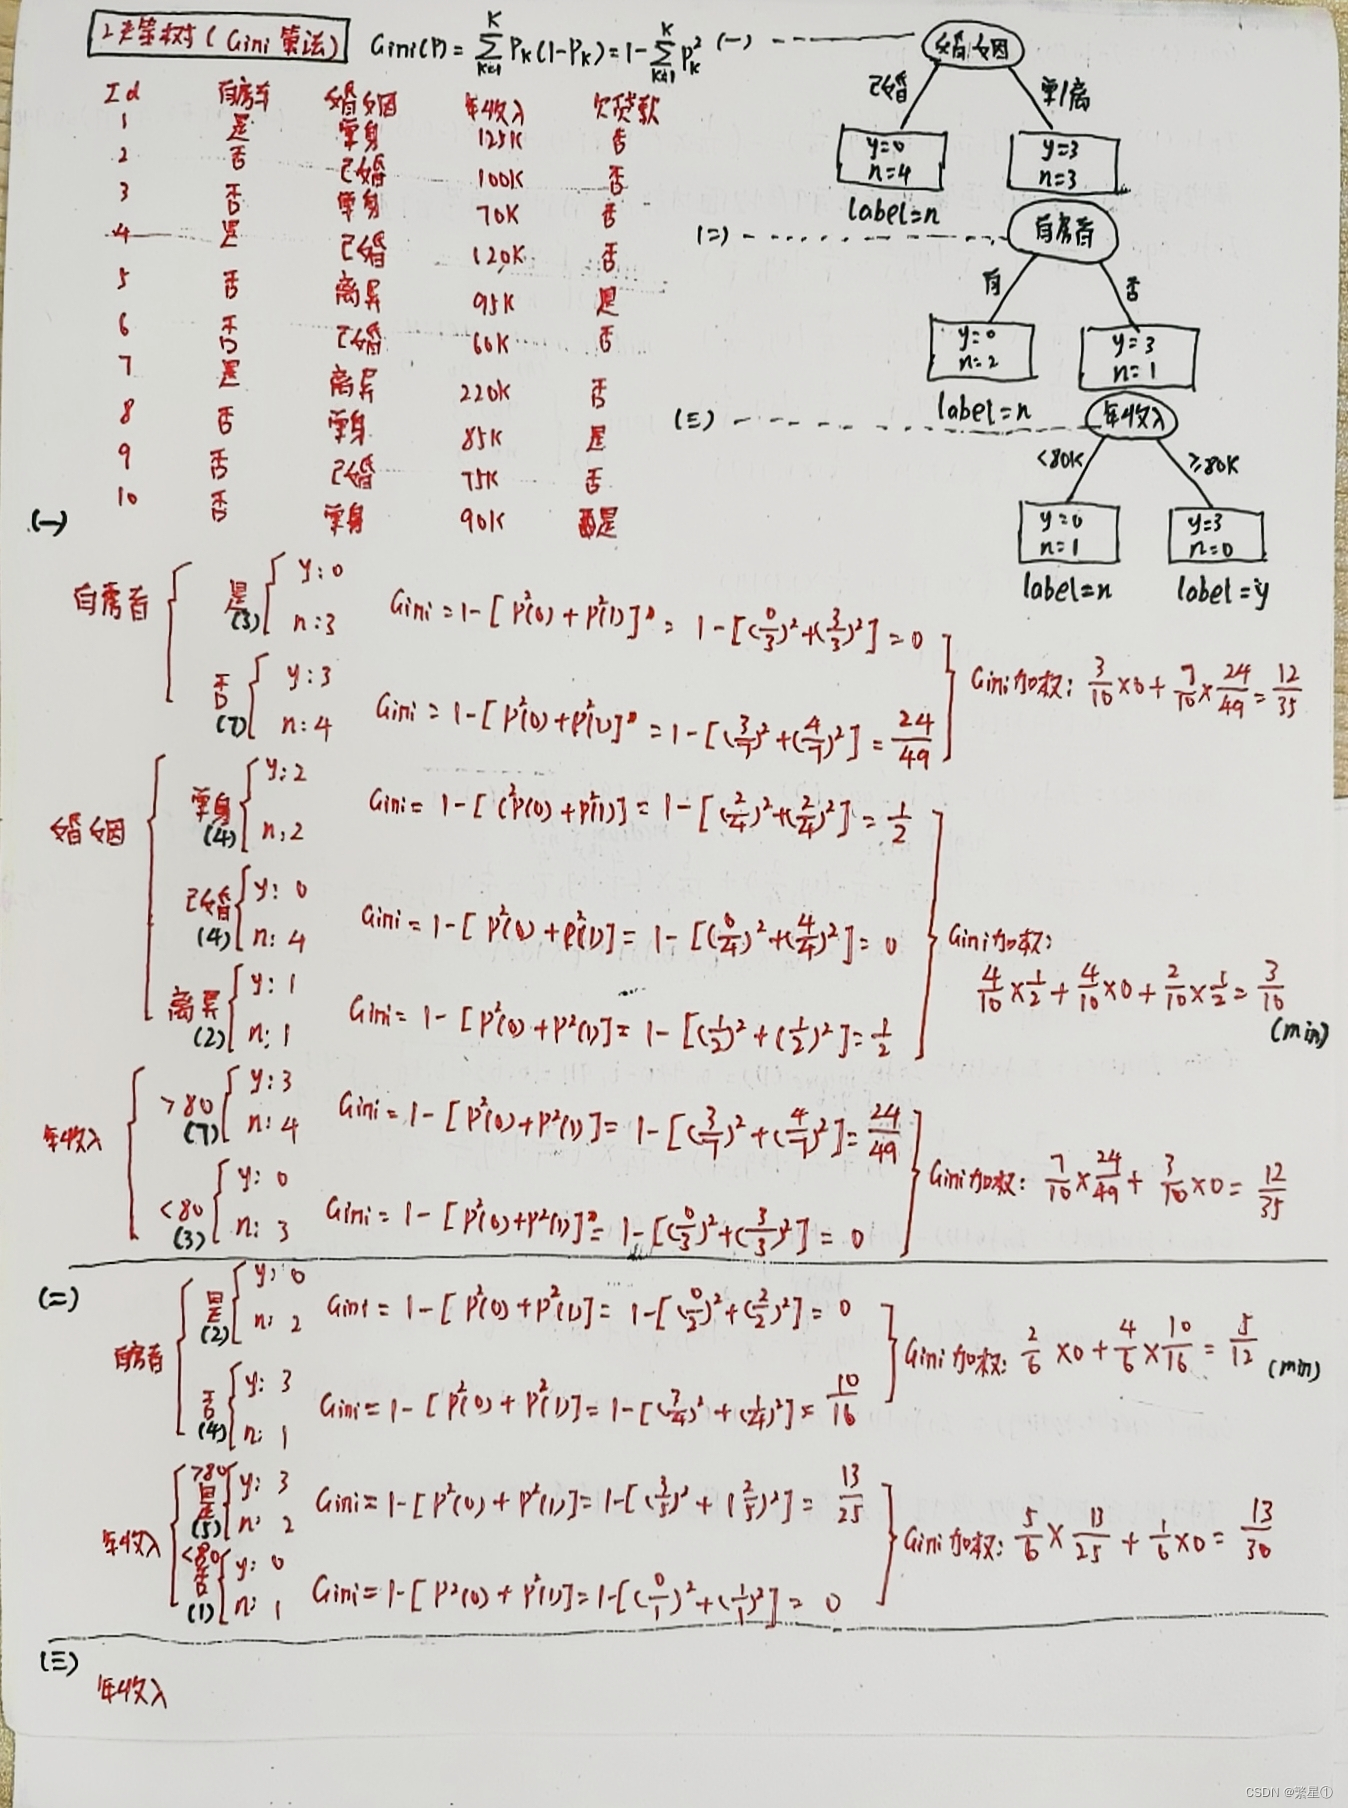 决策树(Gini算法) Gini(P)=∑PK(1-PK)=1-∑PK² (一)
婚姻
已婚 单/离
y=0 y=3
n=4 n=3
label=n
(二) 有房者
有 否
y=0 y=3
n=2 n=1
label=n
(三) 年收入
<80K ≥80K
y=0 y=3
n=1 n=0
label=n label=y
Id 有房车 婚姻 年收入 欠贷款
1 是 单身 125K 否
2 否 已婚 100K 否
3 否 单身 70K 否
4 是 已婚 120K 否
5 否 离异 95K 是
6 否 已婚 60K 否
7 是 离异 220K 否
8 否 单身 85K 是
9 否 已婚 75K 否
10 否 单身 90K 是
(一)
有房者 是(3) y:0 n:3 Gini=1-[P²(0)+P²(1)]=1-[(0/3)²+(3/3)²]=0
否(7) y:3 n:4 Gini=1-[P²(0)+P²(1)]=1-[(3/7)²+(4/7)²]=24/49
Gini加权: 3/10×0+7/10×24/49=12/35
婚姻 单身(4) y:2 n:2 Gini=1-[(P²(0)+P²(1)]=1-[(2/4)²+(2/4)²]=1/2
已婚(4) y:0 n:4 Gini=1-[P²(0)+P²(1)]=1-[(0/4)²+(4/4)²]=0
离异(2) y:1 n:1 Gini=1-[P²(0)+P²(1)]=1-[(1/2)²+(1/2)²]=1/2
Gini加权:
4/10×1/2+4/10×0+2/10×1/2=3/10
(min)
年收入 >80(7) y:3 n:4 Gini=1-[P²(0)+P²(1)]=1-[(3/7)²+(4/7)²]=24/49
<80(3) y:0 n:3 Gini=1-[P²(0)+P²(1)]=1-[(0/3)²+(3/3)²]=0
Gini加权: 7/10×24/49+3/10×0=12/35
(二)
有房者 是(2) y:0 n:2 Gini=1-[P²(0)+P²(1)]=1-[(0/2)²+(2/2)²]=0
否(4) y:3 n:1 Gini=1-[P²(0)+P²(1)]=1-[(3/4)²+(1/4)²]=10/16
Gini加权: 2/6×0+4/6×10/16=5/12 (min)
年收入 >80 是(5) y:3 n:2 Gini=1-[P²(0)+P²(1)]=1-[(3/5)²+(2/5)²]=13/25
<80 否(1) y:0 n:1 Gini=1-[P²(0)+P²(1)]=1-[(0/1)²+(1/1)²]=0
Gini加权: 5/6×13/25+1/6×0=13/30
(三)
年收入
CSDN @繁星①